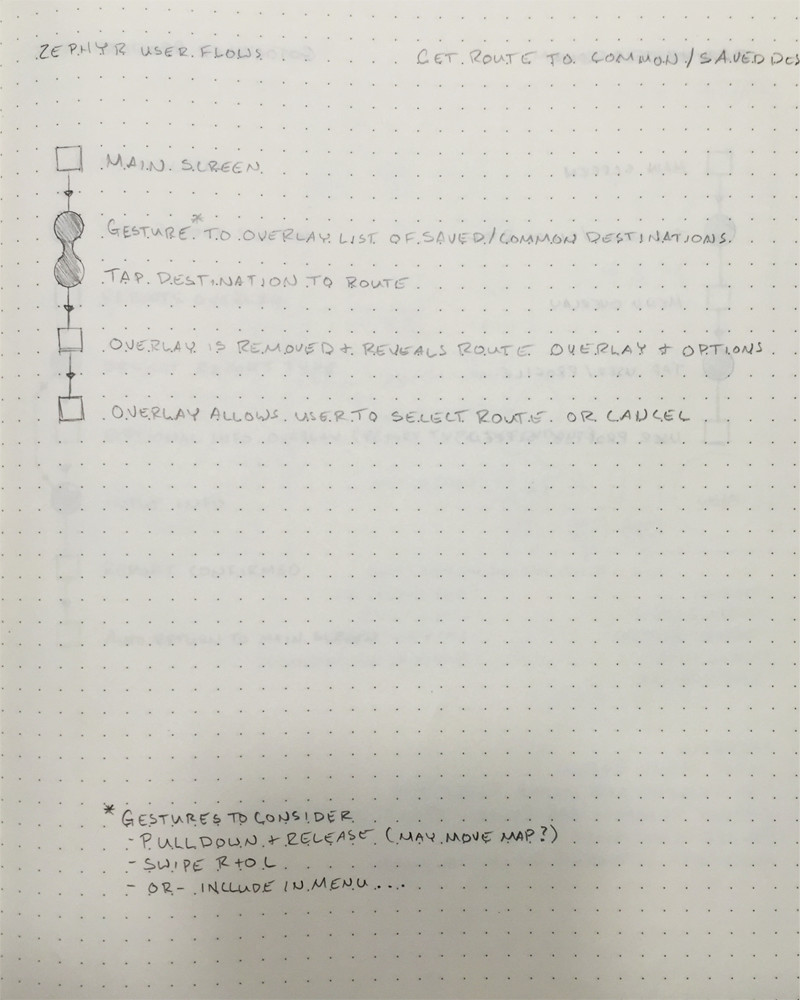 ZEPHYR USER FLOWS
GET ROUTE TO COMMON/SAVED DES
MAIN SCREEN
GESTURE* TO OVERLAY LIST OF SAVED/COMMON DESTINATIONS.
TAP DESTINATION TO ROUTE
OVERLAY IS REMOVED + REVEALS ROUTE OVERLAY + OPTIONS
OVERLAY ALLOWS USER TO SELECT ROUTE OR CANCEL
* GESTURES TO CONSIDER
- PULL DOWN + RELEASE (MAY MOVE MAP?)
- SWIPE R TO L
- OR - INCLUDE IN MENU....